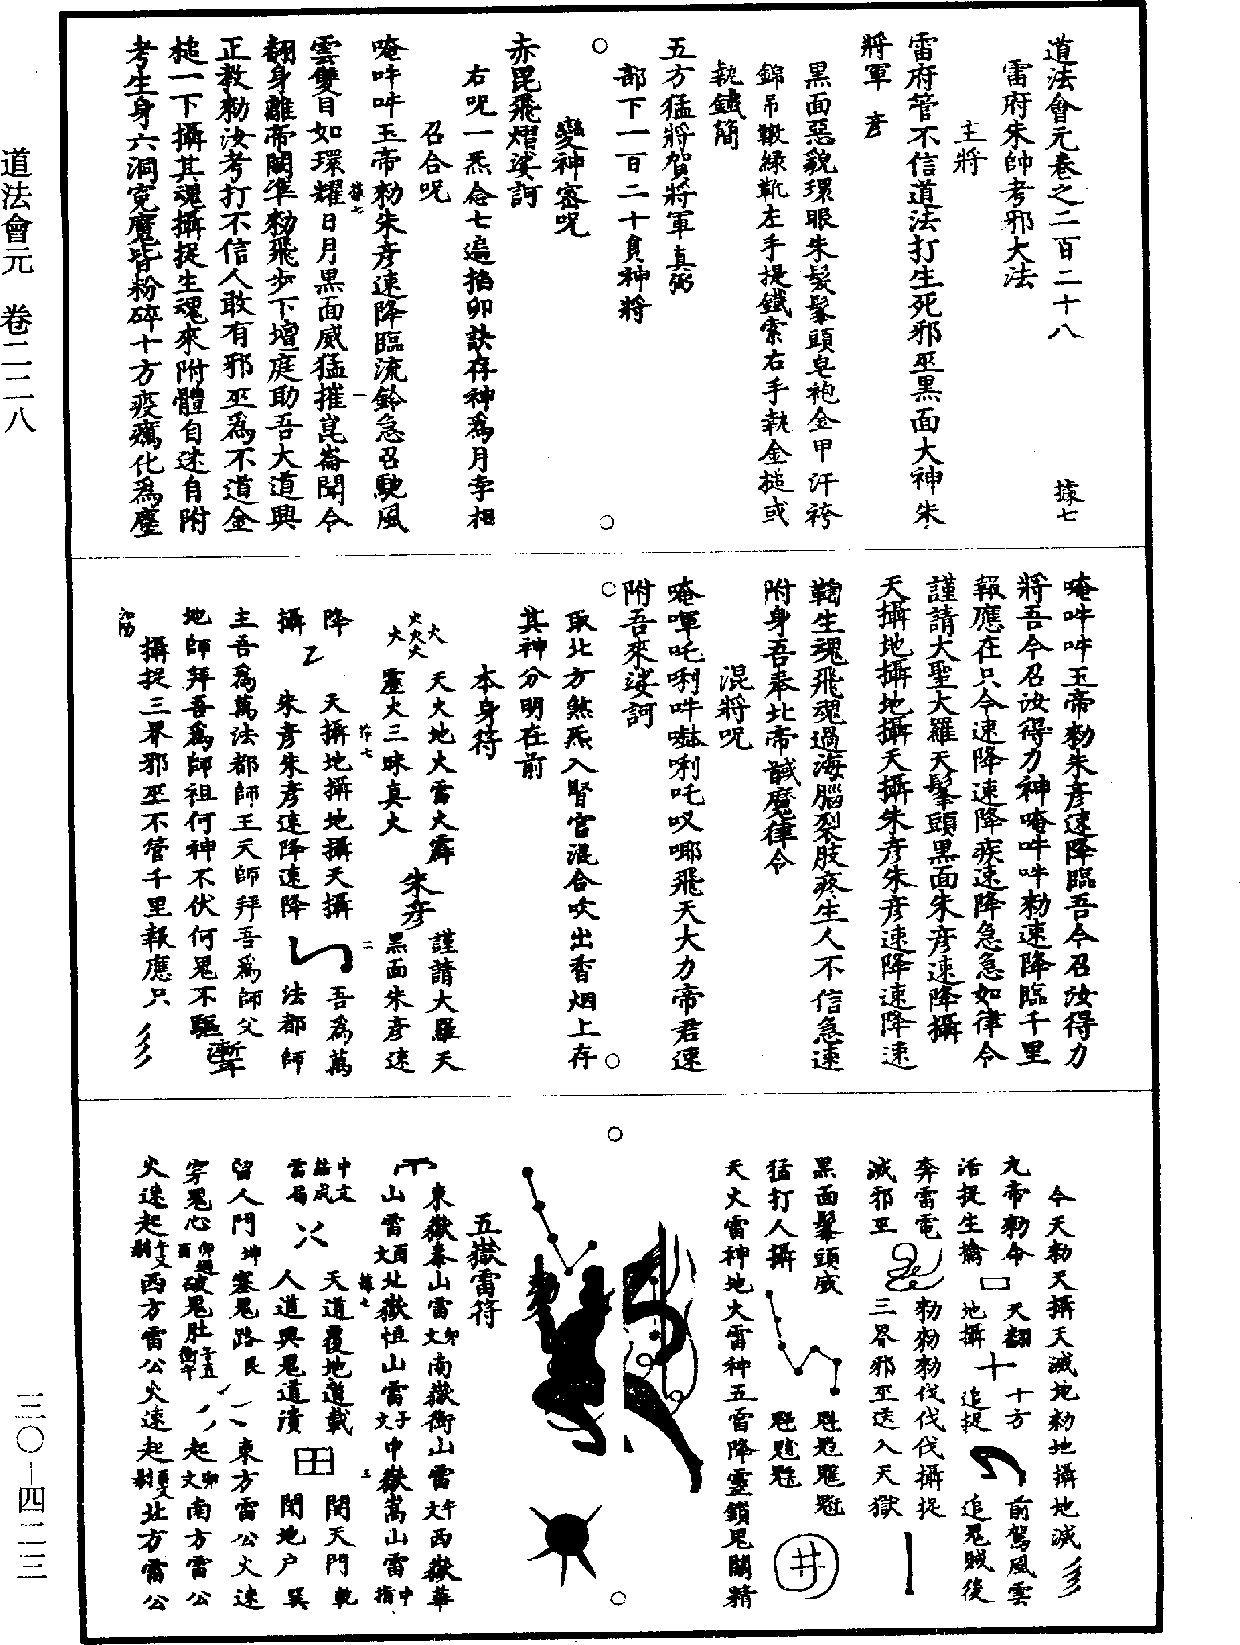 道法會元卷之二百二十八 據七
雷府朱帥考邪大法
主將
雷府管不信道法打生死邪巫黑面大神朱
將軍 彥
黑面惡貌環眼朱髮鬅頭皂袍金甲汗袴
錦吊䩞綠靴左手提鐵索右手執金槌或
執鐵簡
五方猛將賀將軍真弼
部下一百二十員神將
變神密咒
赤毘飛熠娑訶
右咒一炁念七遍掐卯訣存神為月孛相
召合咒
唵吽吽玉帝勑朱彥速降臨流鈴急召馳風
雲雙目如環耀日月黑面威猛摧崑崙聞令
翻身離帝闕準勑飛步下壇庭助吾大道興
正教勑汝考打不信人敢有邪巫為不道金
槌一下攝其魂攝捉生魂來附體自速自附
考生身六洞寃魔皆粉碎十方疫癘化為塵
唵吽吽玉帝勑朱彥速降臨吾今召汝得力
將吾今召汝得力神唵吽吽勑速降臨千里
報應在只今速降速降疾速降急急如律令
謹請大聖大羅天鬅頭黑面朱彥速降攝
天攝地攝地攝天攝朱彥朱彥速降速降速
鞫生魂飛魂過海腦裂肢疼生人不信急速
附身吾奉北帝馘魔律令
混將咒
唵嗶吒唎吽㗲唎吒㕛唧飛天大力帝君速
附吾來娑訶
取北方煞炁入腎宮混合吹出香烟上存
其神分明在前
本身符
火 天火地火雷火霹 謹請大羅天
火火火火 靂火三昧真火 朱彥 黑面朱彥速
降 天攝地攝地攝天攝 吾為萬
攝 朱彥朱彥速降速降 法都師
主吾為萬法都師王天師拜吾為師父
地師拜吾為師祖何神不伏何鬼不驅
攝捉三界邪巫不管千里報應只
今天勑天攝天滅地勑地攝地滅
九帝勑命 天翻 十方 前駕風雲
活捉生擒 地攝 追捉 追鬼賊後
奔雷電 勑勑勑伐伐伐攝捉
滅邪巫 三界邪巫送入天獄
黑面鬅頭威
猛打人攝
天火雷神地火雷神五雷降靈鎖鬼關精
五嶽雷符
東嶽泰山雷卯文南嶽衡山雷午文西嶽華
山雷酉文北嶽恒山雷子文中嶽嵩山雷中指
中文結成雷局 天道覆地道載 開天門乾
人道興鬼道潰 閉地户巽
留人門坤塞鬼路艮 東方雷公火速
穿鬼心破鬼肚 起卯文南方雷公
火速起午文西方雷公火速起酉文北方雷公
道法會元 卷二二八
三〇-四二三